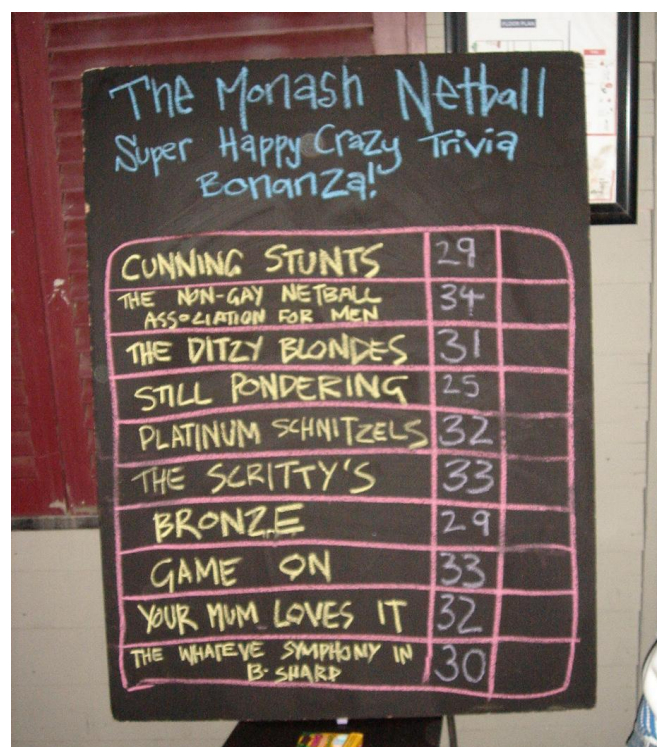 FLOOR PLAN
The Monash Netball
Super Happy Crazy Trivia
Bonanza!
CUNNING STUNTS 29
THE NON-GAY NETBALL
ASSOCIATION FOR MEN 34
THE DITZY BLONDES 31
STILL PONDERING 25
PLATINUM SCHNITZELS 32
THE SCRITTY'S 33
BRONZE 29
GAME ON 33
YOUR MUM LOVES IT 32
THE WHATEVE SYMPHONY IN
B-SHARP 30